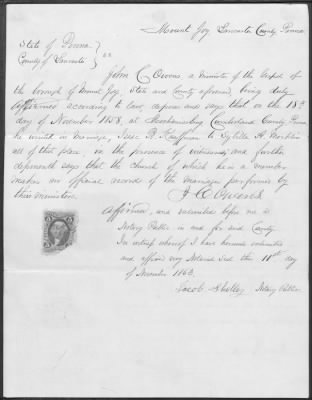 Mount Joy Lancaster County Penna
State of Penna
County of Lancaster } ss
John C Owens a minister of the Gospel of
the borough of Mount Joy, State and County aforesaid, being duly
affirmed according to law, deposes and says that on the 18th
day of November 1858, at Mechanicsburg Cumberland County Penna
he united in marriage, Isaac B. Kauffman to Sybilla A.
all of that place in the presence of witnesses, and further
deponeth says that the church of which he is a member
makes no official record of the marriages performed by
their ministers.
J C Owens
Affirmed, and subscribed before me a
Notary Public in and for said County
In witness whereof I have hereunto subscribed
and affixed my Notarial Seal this 11th day
of November 1863.
Jacob Shelley Notary Public